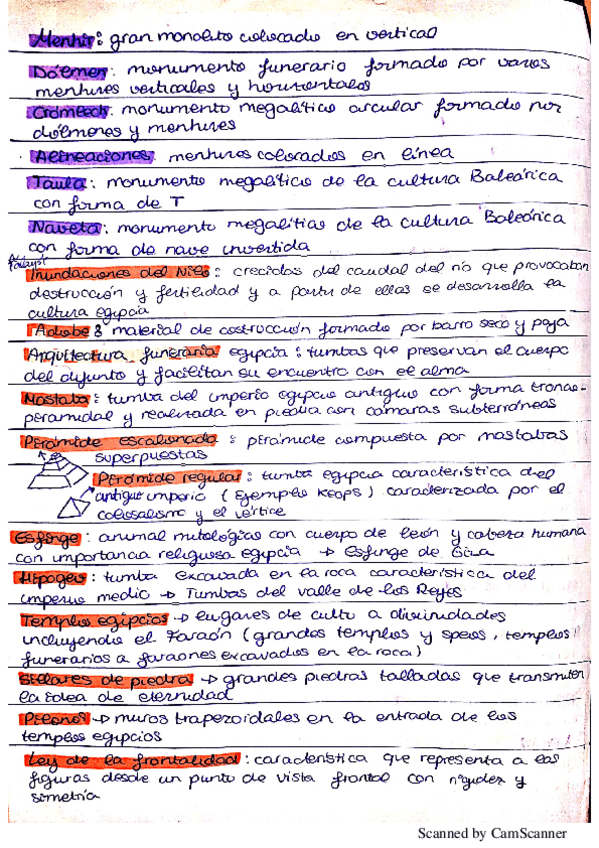 Menhir: gran monolito colocado en vertical
Dólmen: monumento funerario formado por varios
menhires verticales y horizontales
Cromlech: monumento megalítico circular formado por
dólmenes y menhires
Alineaciones: menhires colocados en línea
Taula: monumento megalítico de la cultura Baleárica
con forma de T
Naveta: monumento megalítias de la cultura Baleárica
con forma de nave invertida
Inundaciones del Nilo: crecidas del caudal del río que provocaban
destrucción y fertilidad y a partir de ellas se desarrolla la
cultura egipcia
Adobe: material de costrucción formado por barro seco y paja
Arquitectura funeraria egipcia: tumbas que preservan el cuerpo
del difunto y facilitan su encuentro con el alma
Mastaba: tumba del imperio egipcio antiguo con forma tronco-
piramidal y realizada en piedra con cámaras subterráneas
Pirámide escalonada: pirámide compuesta por mastabas
superpuestas
Pirámide regular: tumba egipcia característica del
antiguo imperio (Ejemplo Keops) caracterizada por el
colosalismo y el vértice
Esfinge: animal mitológico con cuerpo de león y cabeza humana
con importancia religiosa egipcia → Esfinge de Giza
Hipogeo: tumba excavada en la roca característica del
imperio medio → Tumbas del valle de los Reyes
Templos egipcios → lugares de culto a divinidades
incluyendo el Faraón (grandes templos y speos, templos
funerarios a faraones excavados en la roca)
Sillares de piedra → grandes piedras talladas que transmiten
la idea de eternidad
Pilonos → muros trapezoidales en la entrada de los
templos egipcios
Ley de la frontalidad: característica que representa a las
figuras desde un punto de vista frontal con rigidez y
simetría
Scanned by CamScanner